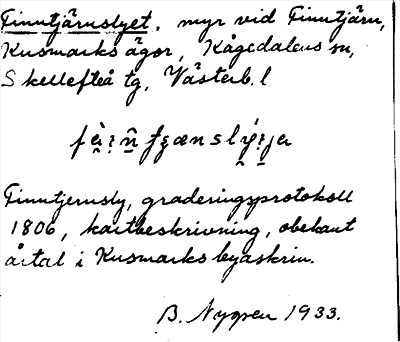 Finntjärnslyet, myr vid Finntjärn,
Kusmarks ägor, Kågedalens sn,
Skellefteå tg, Västerb. l
Finntjernsly, graderingsprotokoll
1806, kartbeskrivning, obekant
årtal i Kusmarks byaskrin.
B. Nygren 1933.